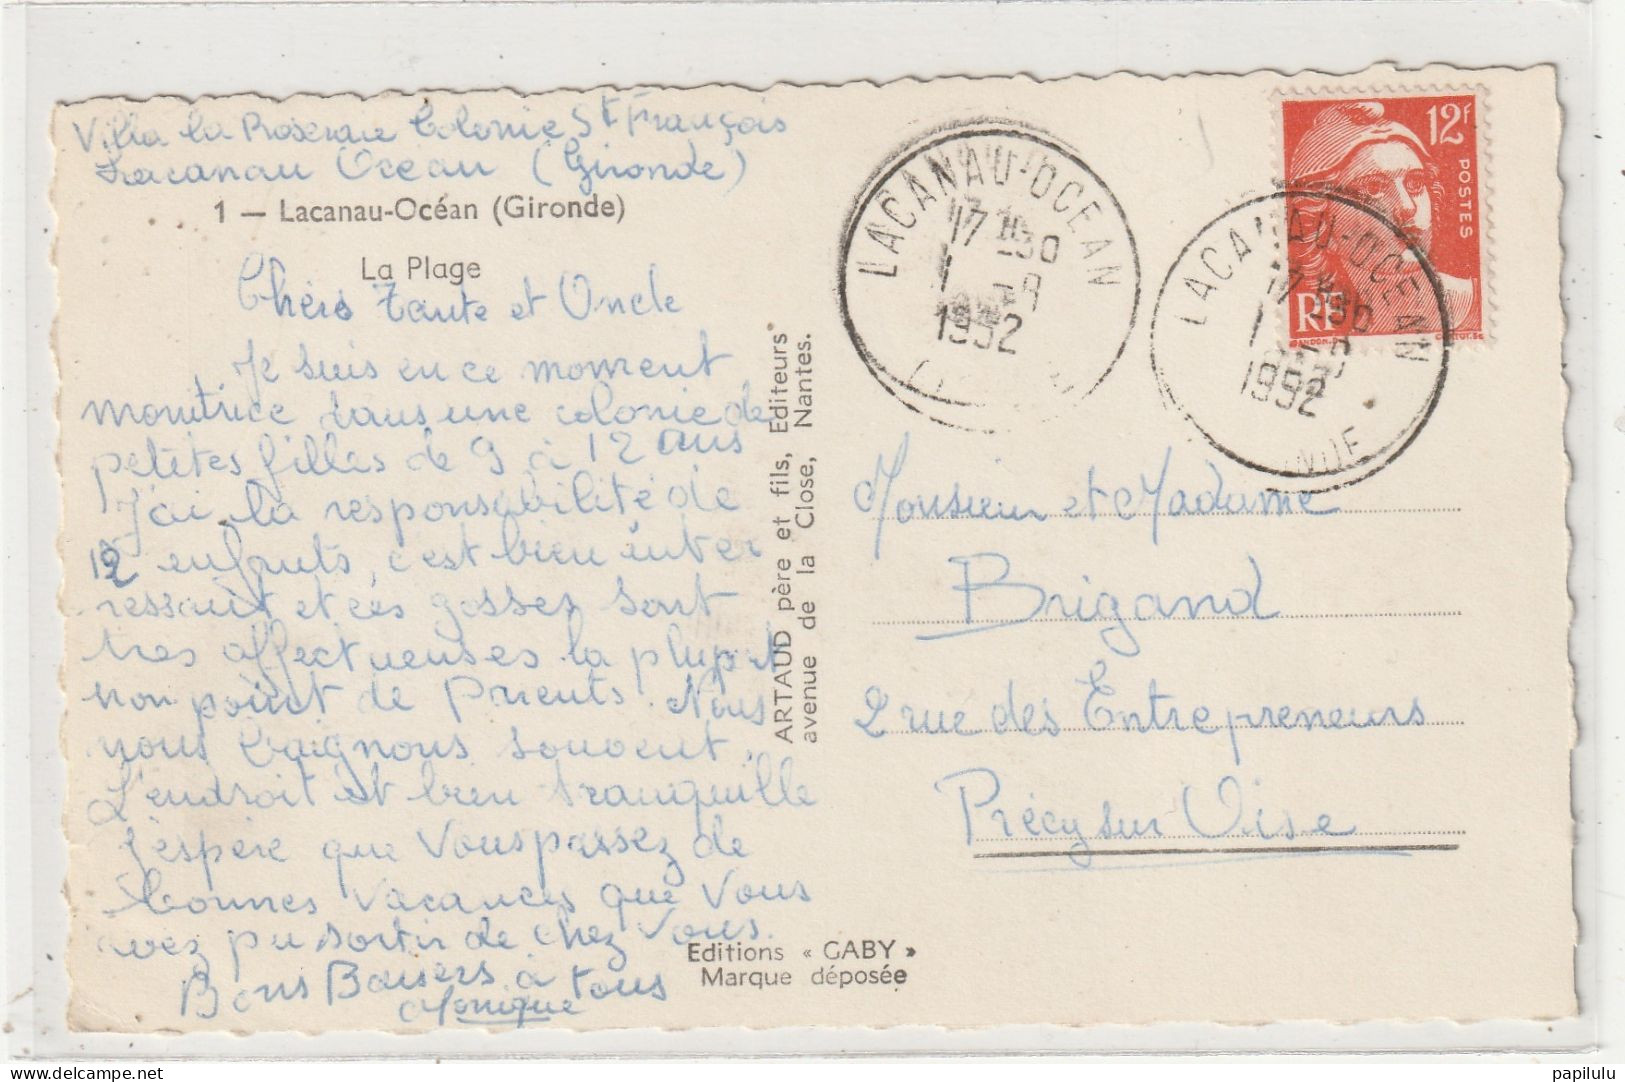 Villa la Roseraie Colonie St François
Lacanau Océan (Gironde)
1 — Lacanau-Océan (Gironde)
La Plage
Chers Tante et Oncle
Je suis en ce moment
monitrice dans une colonie de
petites filles de 9 à 12 ans
J'ai la responsabilité de
12 enfants, c'est bien inter
ressant et ces gosses sont
tres affectueuses la plupart
non point de Parents. Nous
nous baignons souvent.
L'endroit est bien tranquille
j'espère que Vous passez de
bonnes Vacances que Vous
avez pu sortir de chez Vous.
Bons Baisers à tous
Monique
ARTAUD père et fils, Editeurs
avenue de la Close, Nantes.
Editions « GABY »
Marque déposée
LACANAU-OCEAN
17 30
1 -9
1952
12f
POSTES
RF
LACANAU-OCEAN
17 30
1952
Monsieur et Madame
Brigand
2 rue des Entrepreneurs
Précy sur Oise
papilulu